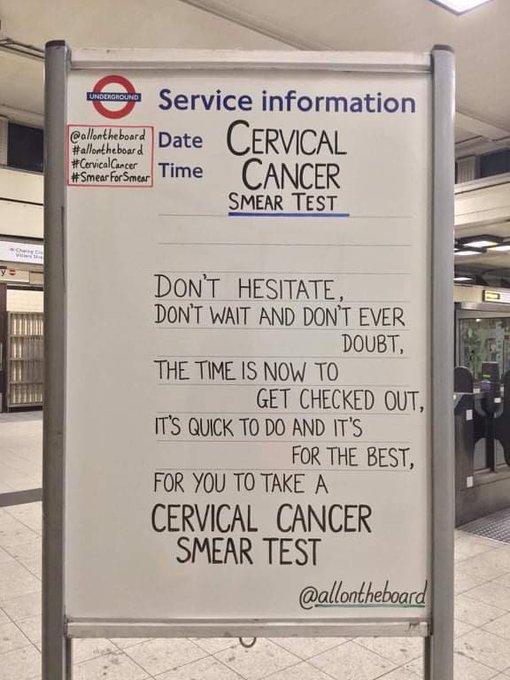 UNDERGROUND
Service information
@allontheboard
#allontheboard
#CervicalCancer
#SmearForSmear
Date
Time
CERVICAL
CANCER
SMEAR TEST
DON'T HESITATE,
DON'T WAIT AND DON'T EVER
DOUBT,
THE TIME IS NOW TO
GET CHECKED OUT,
IT'S QUICK TO DO AND IT'S
FOR THE BEST,
FOR YOU TO TAKE A
CERVICAL CANCER
SMEAR TEST
@allontheboard